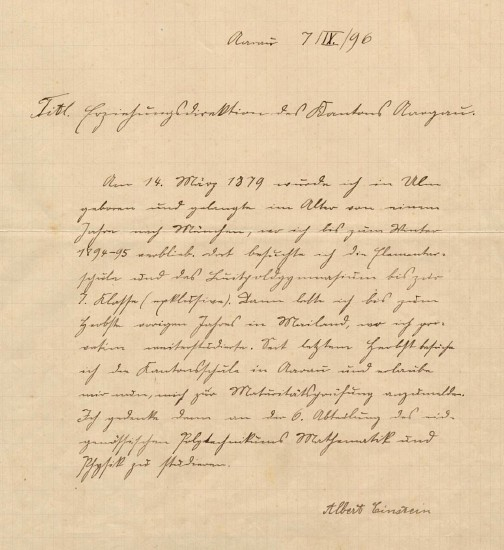 Aarau 7/IX./96
Titl. Erziehungsdirektion des Kantons Aargau.
Am 14. März 1879 wurde ich in Ulm
geboren und gelangte im Alter von einem
Jahre nach München, wo ich bis zum Winter
1894-95 verblieb. Dort besuchte ich die Elementar-
schule und das Luitpoldgymnasium bis zur
7. Klasse (exklusive). Dann lebte ich bis zum
Herbste vorigen Jahres in Mailand, wo ich pri-
vatim weiterstudierte. Seit letztem Herbst besuche
ich die Kantonsschule in Aarau und erlaube
mir nun, mich zur Maturitätsprüfung anzumelden.
Ich gedenke dann an der 6. Abteilung des eid-
genössischen Polytechnikums Mathematik und
Physik zu studieren.
Albert Einstein